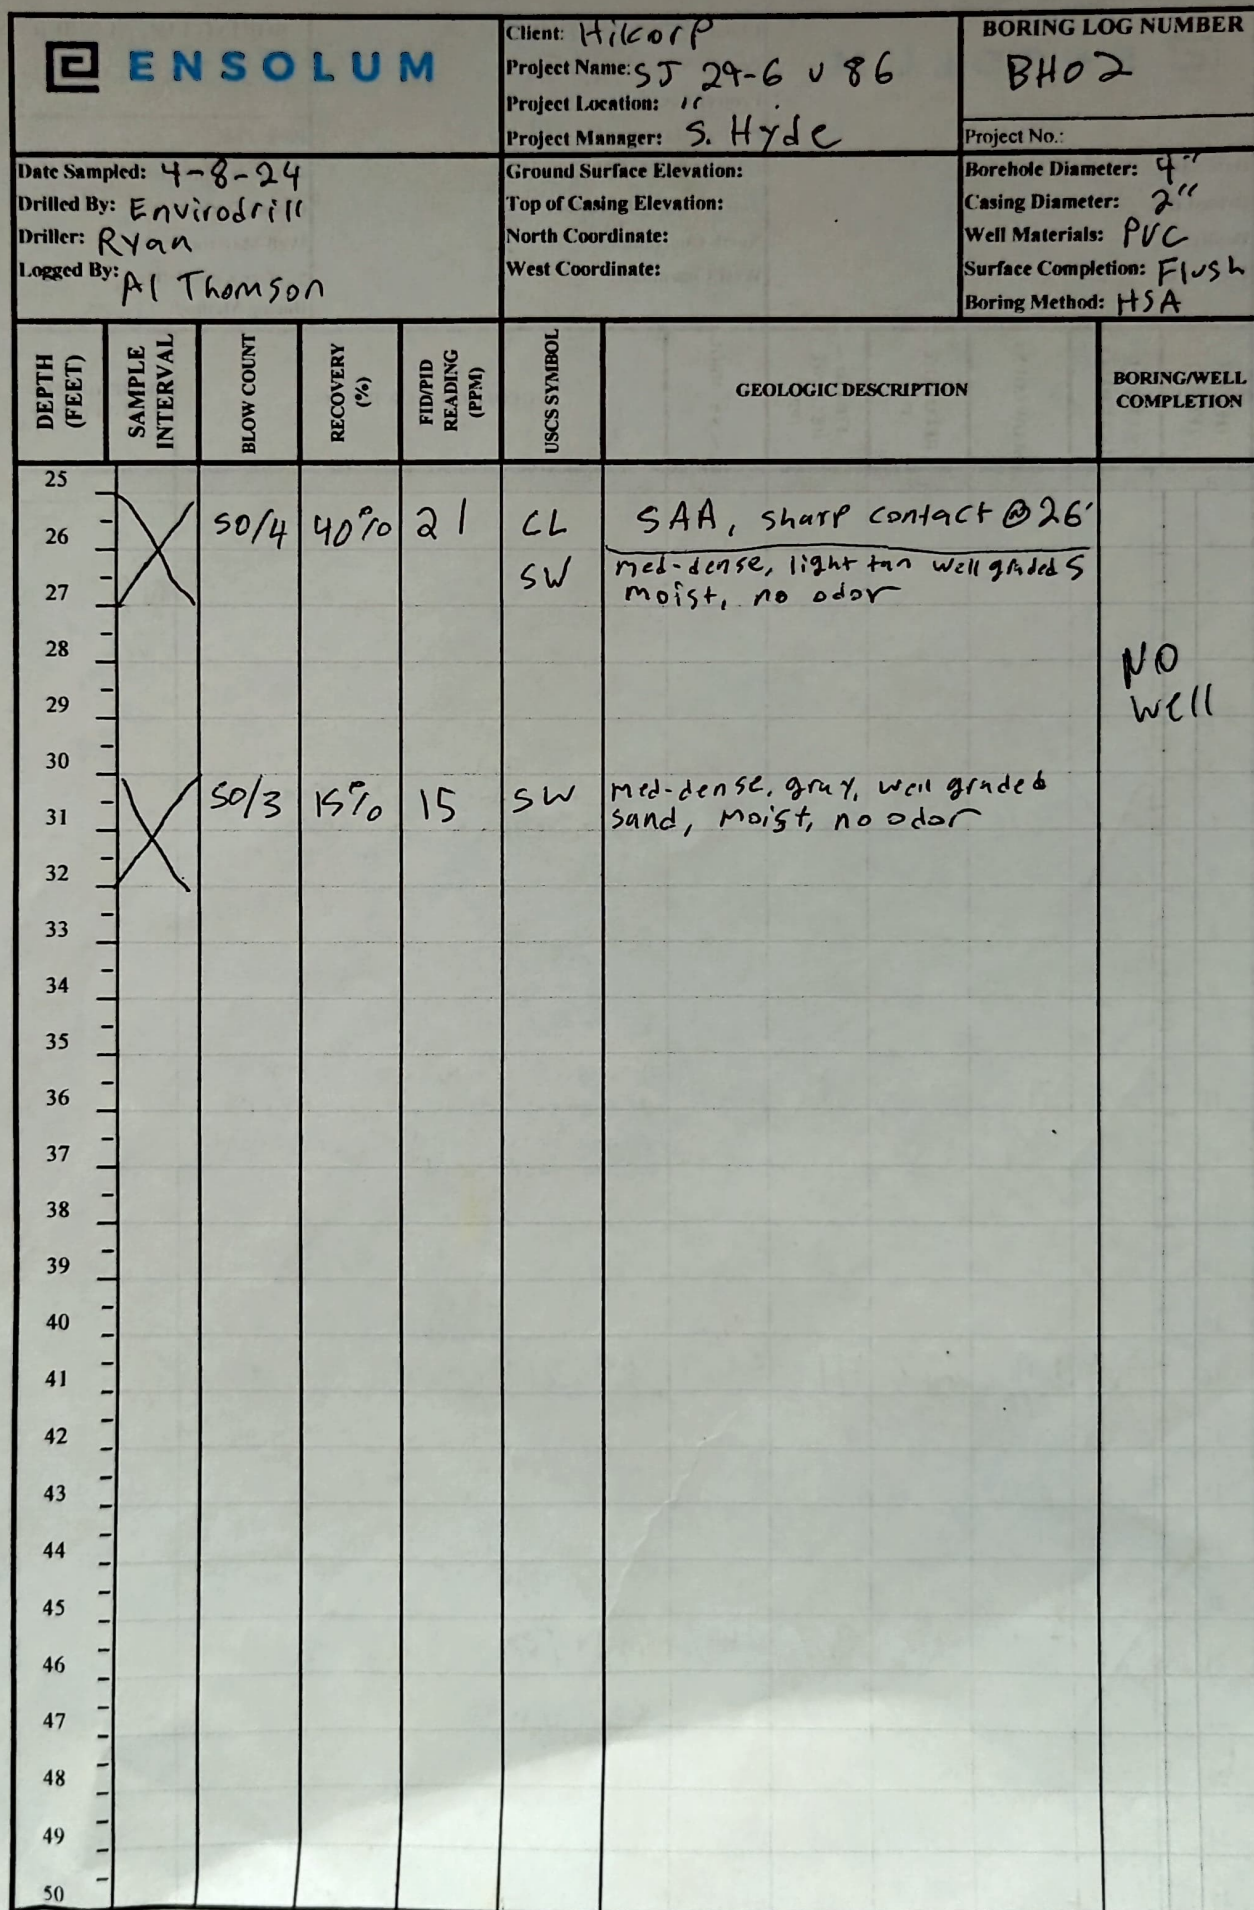 ENSOLUM
Client: Hilcorp
Project Name: SJ 29-6 U 86
Project Location: "
Project Manager: S. Hyde
BORING LOG NUMBER
BH02
Project No.:
Date Sampled: 4-8-24
Drilled By: Envirodrill
Driller: Ryan
Logged By: Al Thomson
Ground Surface Elevation:
Top of Casing Elevation:
North Coordinate:
West Coordinate:
Borehole Diameter: 4"
Casing Diameter: 2"
Well Materials: PVC
Surface Completion: Flush
Boring Method: HSA
DEPTH
(FEET)
SAMPLE
INTERVAL
BLOW COUNT
RECOVERY
(%)
FID/PID
READING
(PPM)
USCS SYMBOL
GEOLOGIC DESCRIPTION
BORING/WELL
COMPLETION
25
26 50/4 40% 21 CL SAA, sharp contact @ 26'
SW med-dense, light tan well graded S
27 moist, no odor
28 NO
29 well
30
50/3 15% 15 SW med-dense, gray, well graded
31 sand, moist, no odor
32
33
34
35
36
37
38
39
40
41
42
43
44
45
46
47
48
49
50